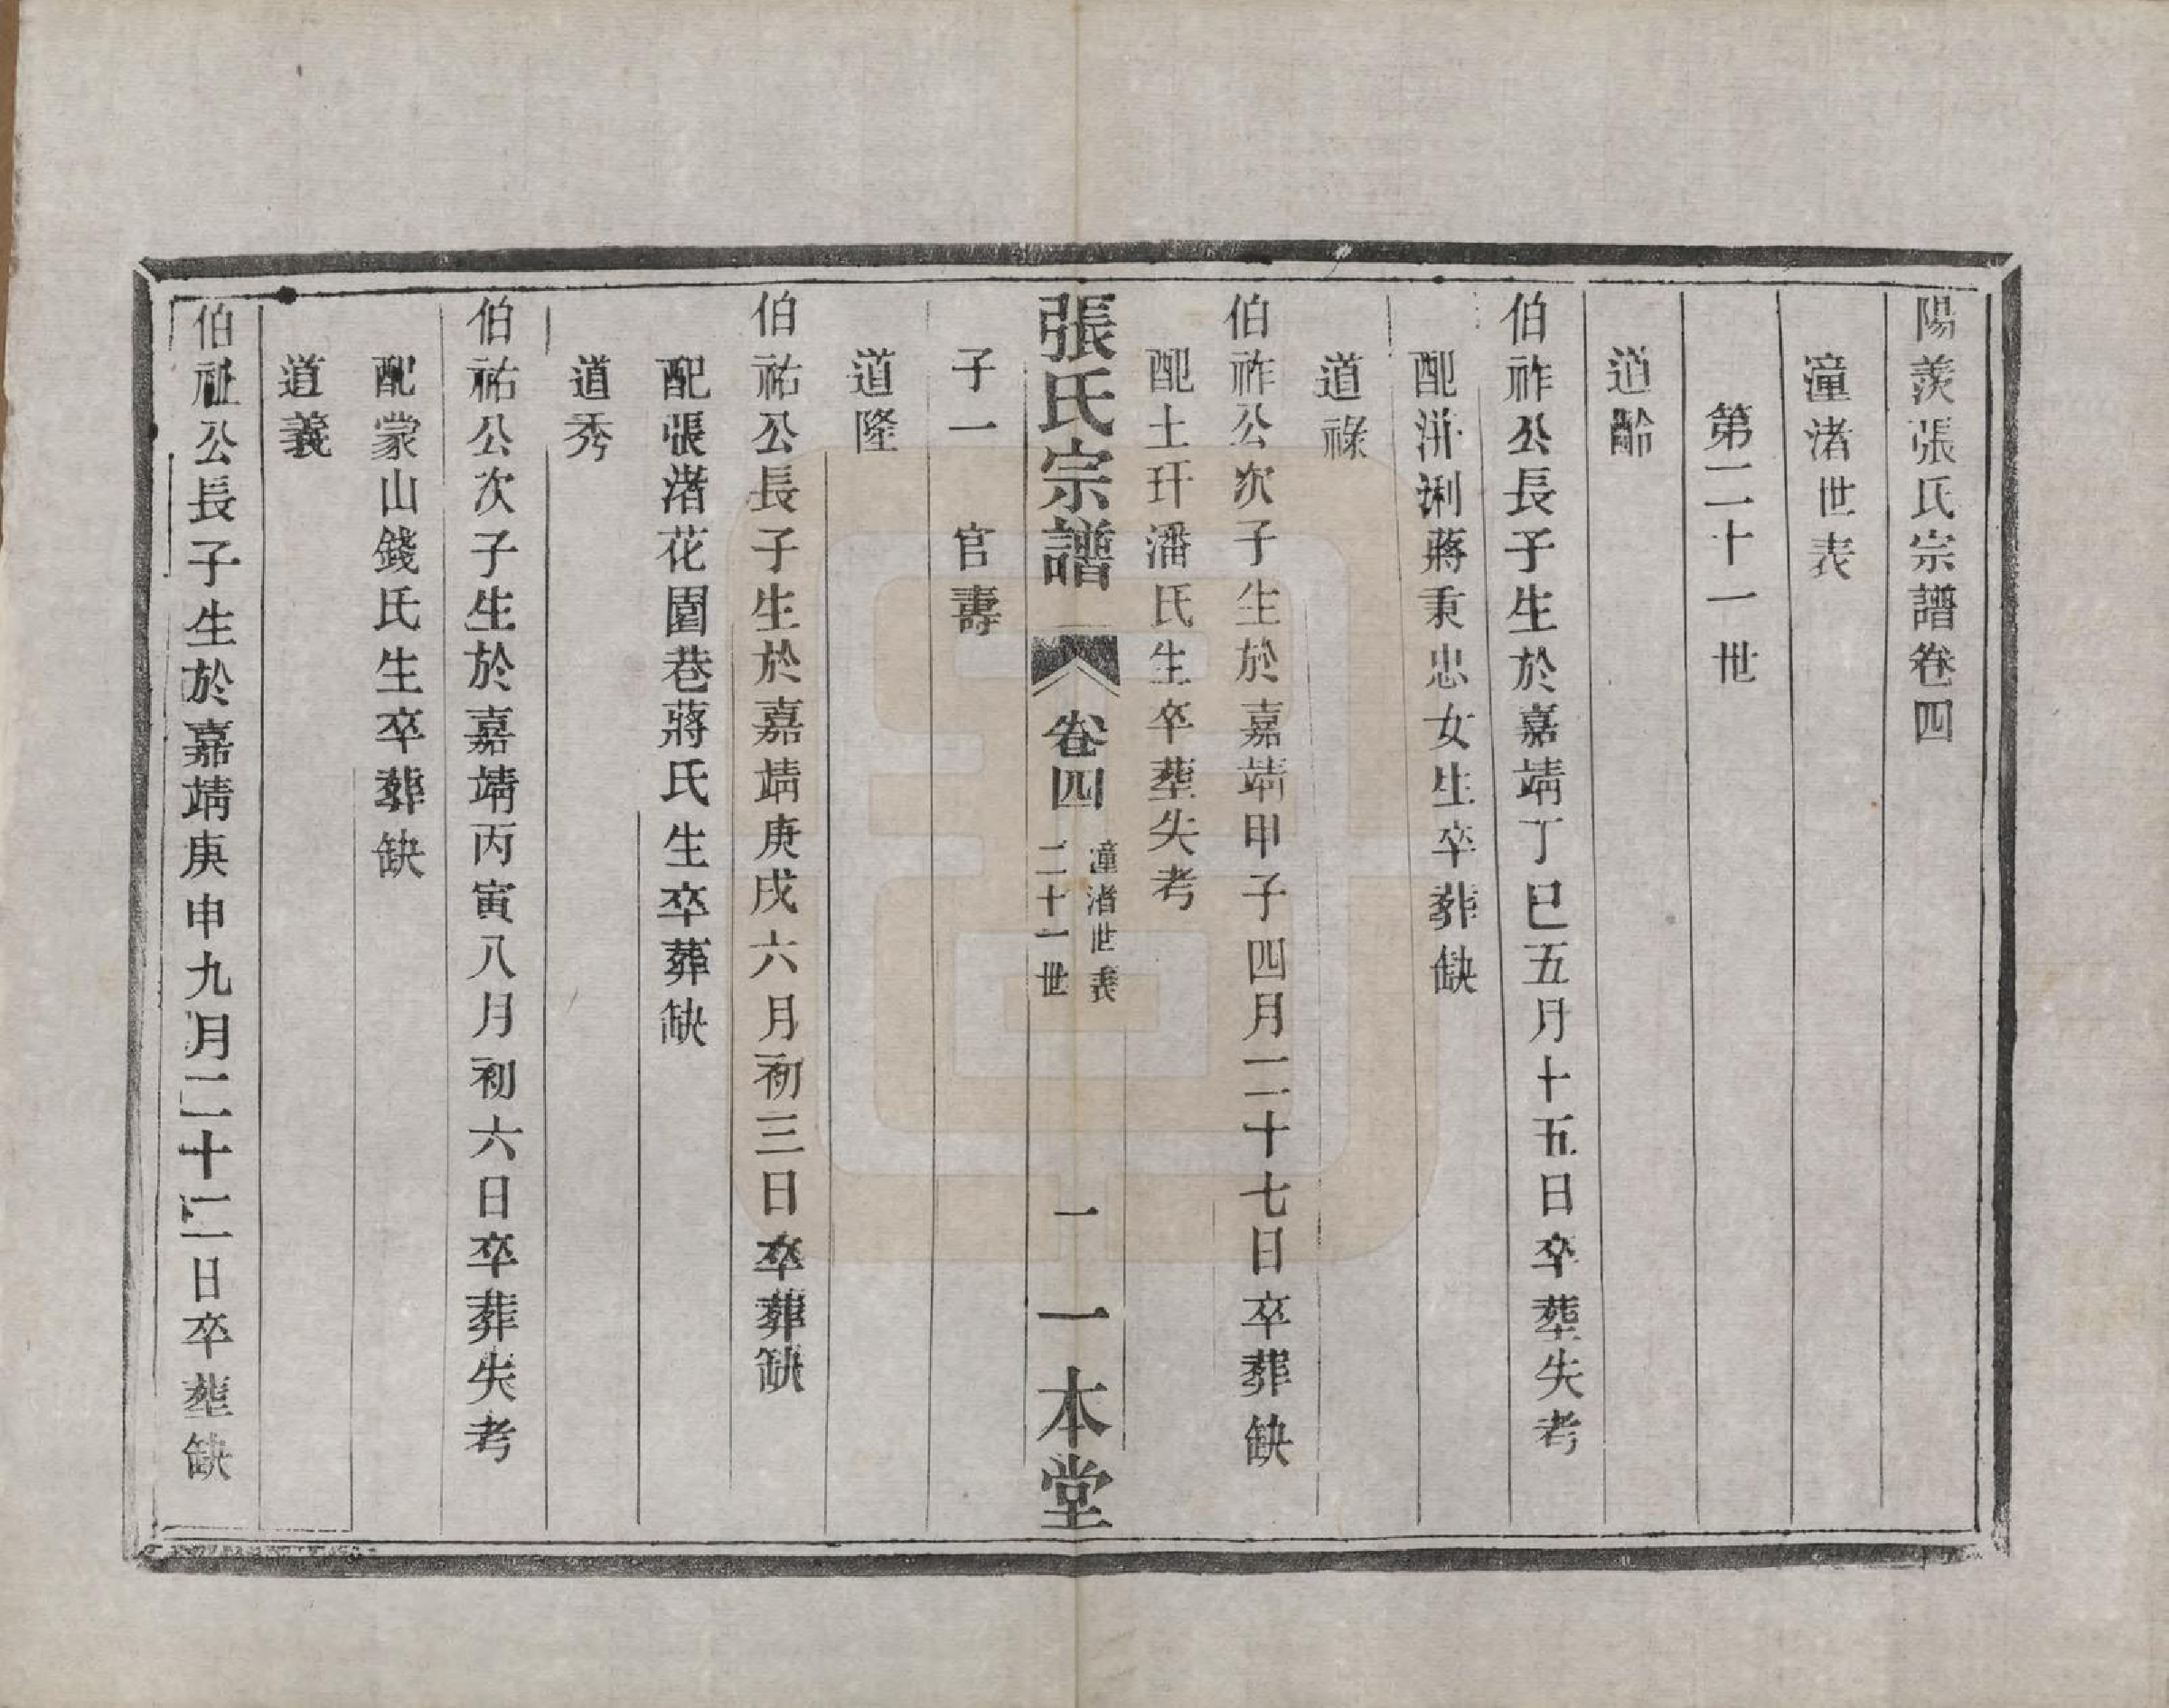 陽羨張氏宗譜卷四
潼渚世表
第二十一世
道齡
伯祚公長子生於嘉靖丁巳五月十五日卒塟失考
配洴浰蔣秉忠女生卒葬缺
道祿
伯祚公次子生於嘉靖甲子四月二十七日卒葬缺
配土玕潘氏生卒塟失考
張氏宗譜
卷四
潼渚世表
二十一世
一
一本堂
子一 官壽
道隆
伯祐公長子生於嘉靖庚戌六月初三日卒葬缺
配張渚花園巷蔣氏生卒葬缺
道秀
伯祐公次子生於嘉靖丙寅八月初六日卒葬失考
配蒙山錢氏生卒葬缺
道義
伯祉公長子生於嘉靖庚申九月二十二日卒塟缺